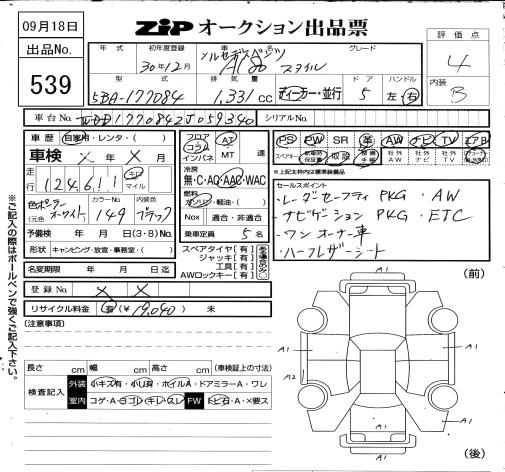 09月18日
ZiP オークション出品票
出品No.
539
年式
初年度登録
30年12月
車名
メルセデスベンツ
A180
スタイル
グレード
評価点
4
型式
5BA-177084
排気量
1,331 cc
ディーラー・並行
ドア
5
ハンドル
左・右
内装
B
車台No.
WDD1770842J059340
シリアルNo.
車歴 自家用・レンタ・( )
車検 X 年 X 月
走行 124,611 キロ マイル
色 ポーラーホワイト
(元色 )
カラーNo.
149
内装色
ブラック
予備検 年 月 日(3・8)No.
形状 キャンピング・放宣・事務室・( )
名変期限 年 月 日迄
登録No. X X
リサイクル料金 有(¥19,040) 未
フロア
コラム
インパネ
AT
MT 速
冷房
無・C・AC・AAC・WAC
燃料
ガソリン・軽油・( )
Nox 適合・非適合
乗車定員 5 名
スペアタイヤ[有]
ジャッキ[有]
工具[有]
AWロックキー[有]
ある場合のみ○
PS PW SR 革 AW ナビ TV エアB
スペアキー 取説 記録簿 手帳 社外AW 社外ナビ 社外TV
※上記太枠内は標準装備品
セールスポイント
・レーダーセーフティPKG ・AW
・ナビゲーションPKG ・ETC
・ワンオーナー車
・ハーフレザーシート
※ご記入の際はボールペンで強くご記入下さい
(注意事項)
長さ cm 幅 cm 高さ cm (車検証上の寸法)
検査記入
外装 小キズ有・小凹有・ホイルA・ドアミラーA・ワレ
室内 コゲ・A・ヨゴレ・キレ・スレ FW トビ石・A・X要ス
(前)
A1
A1
A1
A2
A1
A1
A1
(後)